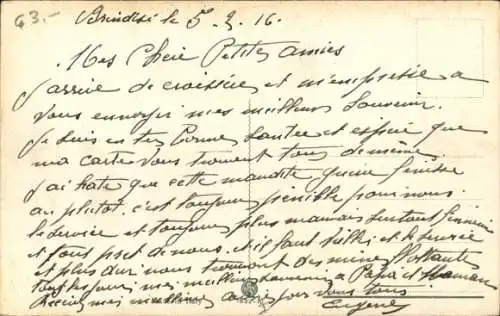 G3.-
Brindisi le 5. 3. 16.
Mes Chère Petites amies
J'arrive de croisière et m'empresse a
vous envoyer mes meilleurs Souvenir.
Je suis en tres bonne Santée et espère que
ma carte vous trouvent tous de même
J'ai hate que cette maudite guerre finisse
au plutot. c'est toujours penible pour nous.
le service et toujours plus mauvais surtout
et tout pret de nous. et il faut et le service
et plus dur nous trouvont des mines flottantes
tout les jours mes meilleurs souvenir a Papa et Maman
Recevez mes meilleurs pour vous tous
Eugene